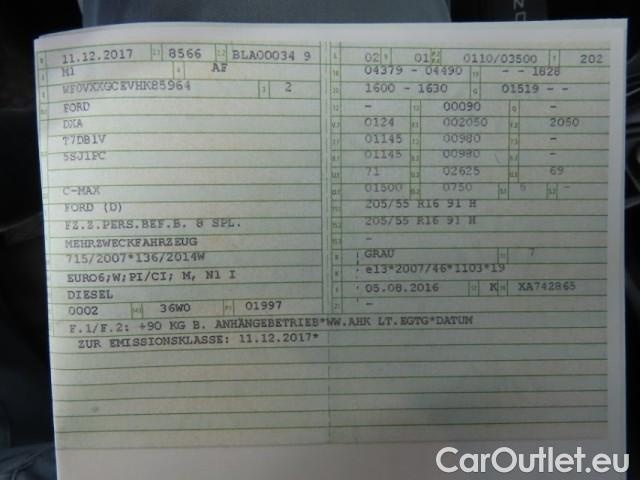 11.12.2017 8566 BLA00034 9
M1 AF
WF0VXXGCEVHK85964 2
FORD
DXA
T7DB1V
5SJ1FC
C-MAX
FORD (D)
FZ.Z.PERS.BEF.B. 8 SPL.
MEHRZWECKFAHRZEUG
715/2007*136/2014W
EURO6;W;PI/CI; M, N1 I
DIESEL
0002 36W0 01997
02 01 0110/03500 202
04379 - 04490 - - 1828
1600 - 1630 01519 - -
- 00090 -
0124 002050 2050
01145 00980
01145 00980
71 02625 69
01500 0750 5 -
205/55 R16 91 H
205/55 R16 91 H
-
GRAU 7
e13*2007/46*1103*19
05.08.2016 K XA742865
-
F.1/F.2: +90 KG B. ANHÄNGEBETRIEB*WW.AHK LT.EGTG*DATUM
ZUR EMISSIONSKLASSE: 11.12.2017*
CarOutlet.eu